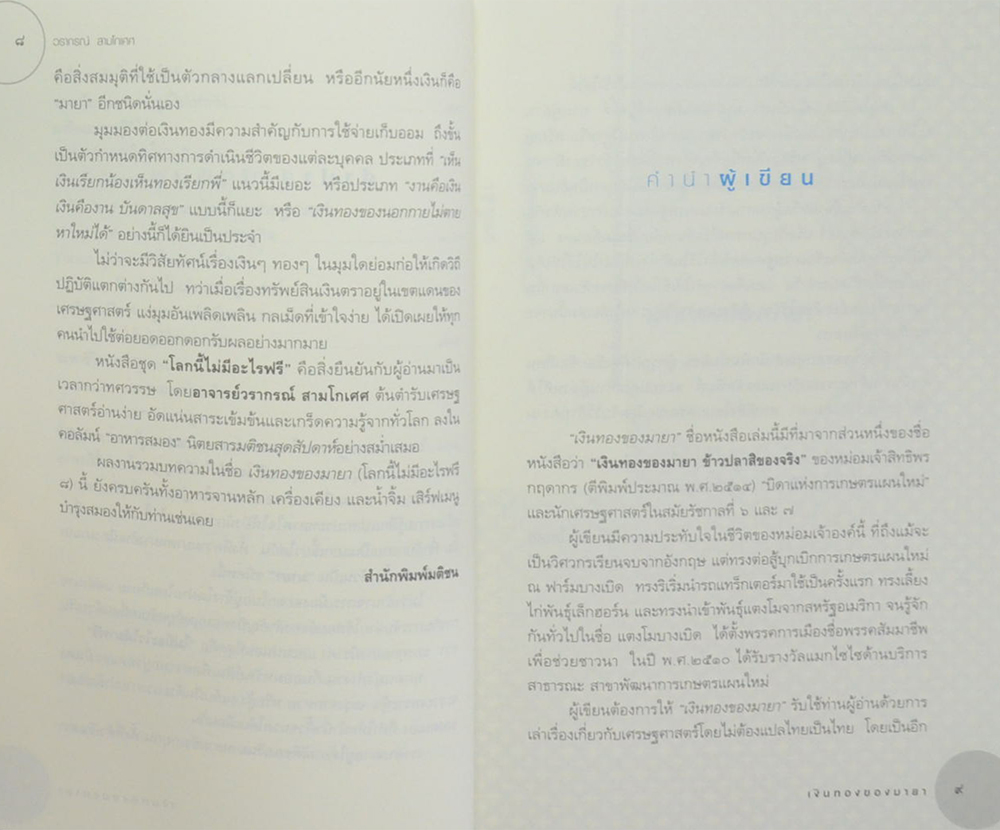 ๘
วรากรณ์ สามโกเศศ
คือสิ่งสมมุติที่ใช้เป็นตัวกลางแลกเปลี่ยน หรืออีกนัยหนึ่งเงินก็คือ
“มายา” อีกชนิดนั่นเอง
มุมมองต่อเงินทองมีความสำคัญกับการใช้จ่ายเก็บออม ถึงขั้น
เป็นตัวกำหนดทิศทางการดำเนินชีวิตของแต่ละบุคคล ประเภทที่ “เห็น
เงินเรียกน้องเห็นทองเรียกพี่” แนวนี้มีเยอะ หรือประเภท “งานคือเงิน
เงินคืองาน บันดาลสุข” แบบนี้ก็แยะ หรือ “เงินทองของนอกกายไม่ตาย
หาใหม่ได้” อย่างนี้ก็ได้ยินเป็นประจำ
ไม่ว่าจะมีวิสัยทัศน์เรื่องเงินๆ ทองๆ ในมุมใดย่อมก่อให้เกิดวิถี
ปฏิบัติแตกต่างกันไป ทว่าเมื่อเรื่องทรัพย์สินเงินตราอยู่ในเขตแดนของ
เศรษฐศาสตร์ แง่มุมอันเพลิดเพลิน กลเม็ดที่เข้าใจง่าย ได้เปิดเผยให้ทุก
คนนำไปใช้ต่อยอดออกดอกรับผลอย่างมากมาย
หนังสือชุด “โลกนี้ไม่มีอะไรฟรี” คือสิ่งยืนยันกับผู้อ่านมาเป็น
เวลากว่าทศวรรษ โดยอาจารย์วรากรณ์ สามโกเศศ ต้นตำรับเศรษฐ
ศาสตร์อ่านง่าย อัดแน่นสาระเข้มข้นและเกร็ดความรู้จากทั่วโลก ลงใน
คอลัมน์ “อาหารสมอง” นิตยสารมติชนสุดสัปดาห์อย่างสม่ำเสมอ
ผลงานรวมบทความในชื่อ เงินทองของมายา (โลกนี้ไม่มีอะไรฟรี
๘) นี้ ยังครบครันทั้งอาหารจานหลัก เครื่องเคียง และน้ำจิ้ม เสิร์ฟเมนู
บำรุงสมองให้กับท่านเช่นเคย
สำนักพิมพ์มติชน
คำนำผู้เขียน
“เงินทองของมายา” ชื่อหนังสือเล่มนี้มีที่มาจากส่วนหนึ่งของชื่อ
หนังสือว่า “เงินทองของมายา ข้าวปลาสิของจริง” ของหม่อมเจ้าสิทธิพร
กฤดากร (ตีพิมพ์ประมาณ พ.ศ.๒๕๑๔) “บิดาแห่งการเกษตรแผนใหม่”
และนักเศรษฐศาสตร์ในสมัยรัชกาลที่ ๖ และ ๗
ผู้เขียนมีความประทับใจในชีวิตของหม่อมเจ้าองค์นี้ ที่ถึงแม้จะ
เป็นวิศวกรเรียนจบจากอังกฤษ แต่ทรงต่อสู้บุกเบิกการเกษตรแผนใหม่
ณ ฟาร์มบางเบิด ทรงริเริ่มนำรถแทร็กเตอร์มาใช้เป็นครั้งแรก ทรงเลี้ยง
ไก่พันธุ์เล็กฮอร์น และทรงนำเข้าพันธุ์แตงโมจากสหรัฐอเมริกา จนรู้จัก
กันทั่วไปในชื่อ แตงโมบางเบิด ได้ตั้งพรรคการเมืองชื่อพรรคสัมมาชีพ
เพื่อช่วยชาวนา ในปี พ.ศ.๒๕๑๐ ได้รับรางวัลแมกไซไซด้านบริการ
สาธารณะ สาขาพัฒนาการเกษตรแผนใหม่
ผู้เขียนต้องการให้ “เงินทองของมายา” รับใช้ท่านผู้อ่านด้วยการ
เล่าเรื่องเกี่ยวกับเศรษฐศาสตร์โดยไม่ต้องแปลไทยเป็นไทย โดยเป็นอีก
เงินทองของมายา
๙